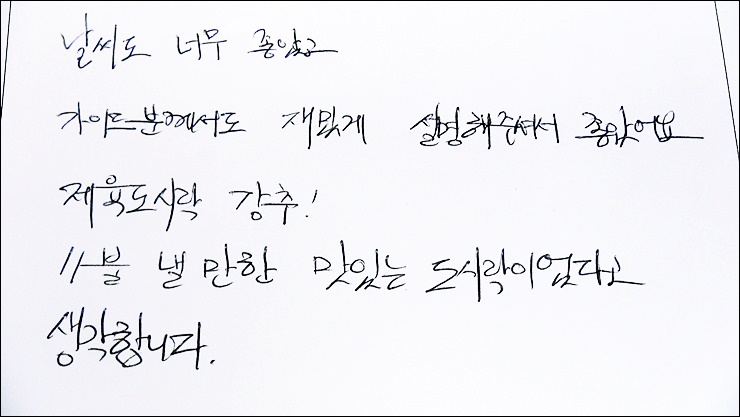 날씨도 너무 좋았고
가이드분께서도 재밌게 설명해주셔서 좋았어요
제육도시락 강추!
11불 낼 만한 맛있는 도시락이었다고
생각합니다.